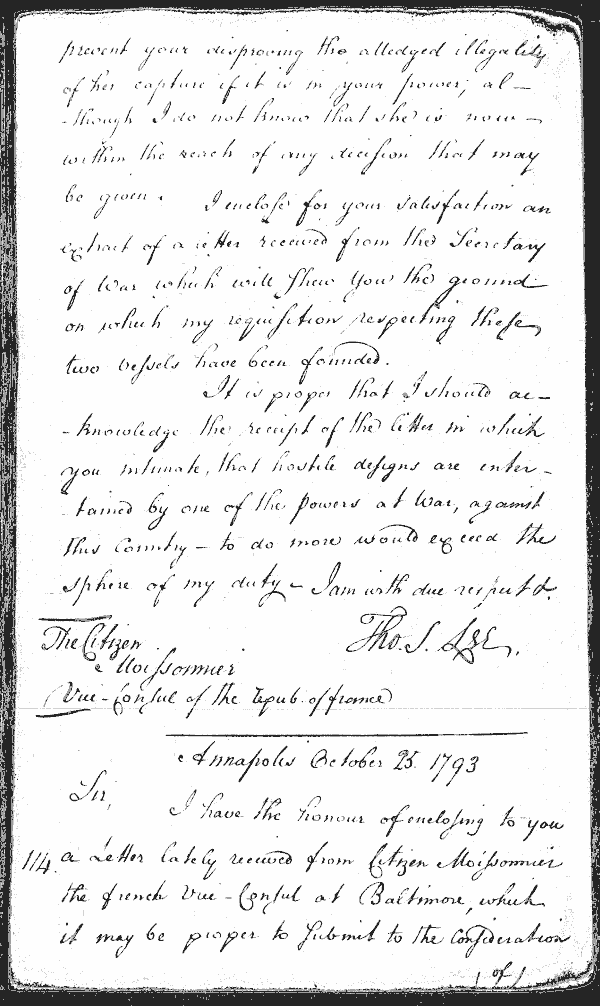 prevent your disproving the alledged illegality
of her capture if it is in your power; al-
-though I do not know that she is now -
within the reach of any decision that may
be given. I enclose for your satisfaction an
extract of a letter received from the Secretary
of War which will shew you the ground
on which my requisition respecting these
two vessels have been founded.
It is proper that I should ac-
-knowledge the receipt of the letter in which
you intimate, that hostile designs are enter-
-tained by one of the Powers at War, against
this Country - to do more would exceed the
sphere of my duty - I am with due respect &.
Tho. S. Lee.
The Citizen
Moissonnier
Vice-Consul of the repub. of france
Annapolis October 25. 1793
Sir,
I have the honour of enclosing to you
114. a Letter lately received from Citizen Moissonnier
the french Vice-Consul at Baltimore, which
it may be proper to submit to the Consideration
of